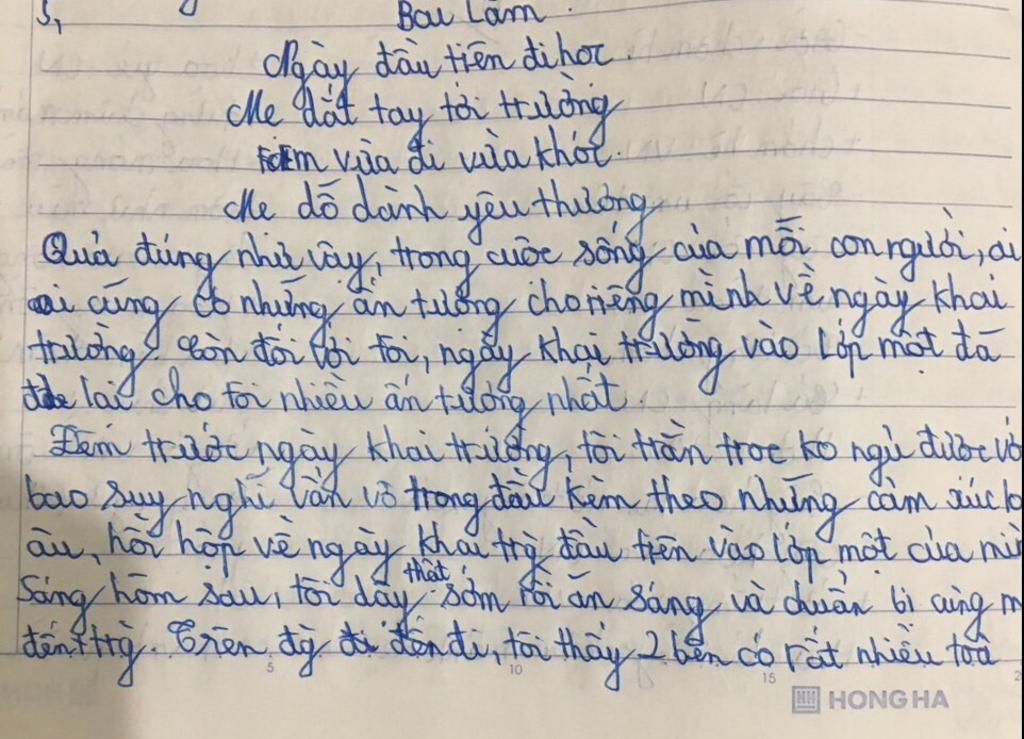 Bài Làm.
Ngày đầu tiên đi học.
Mẹ dắt tay tới trường
Em vừa đi vừa khóc.
Mẹ dỗ dành yêu thương
Quả đúng như vậy, trong cuộc sống của mỗi con người, ai
ai cũng có những ấn tượng cho riêng mình về ngày khai
trường. Còn đối với tôi, ngày khai trường vào lớp một đã
để lại cho tôi nhiều ấn tượng nhất.
Đêm trước ngày khai trường, tôi trằn trọc ko ngủ được vớ
bao suy nghĩ vẩn vơ trong đầu kèm theo những cảm xúc lo
âu, hồi hộp về ngày khai trg đầu tiên vào lớp một của mìn
Sáng hôm sau, tôi dậy thật sớm rồi ăn sáng và chuẩn bị cùng m
đến trg. Trên đg đi, tôi thấy 2 bên có rất nhiều toà
5 10 15 2
HH HONG HA